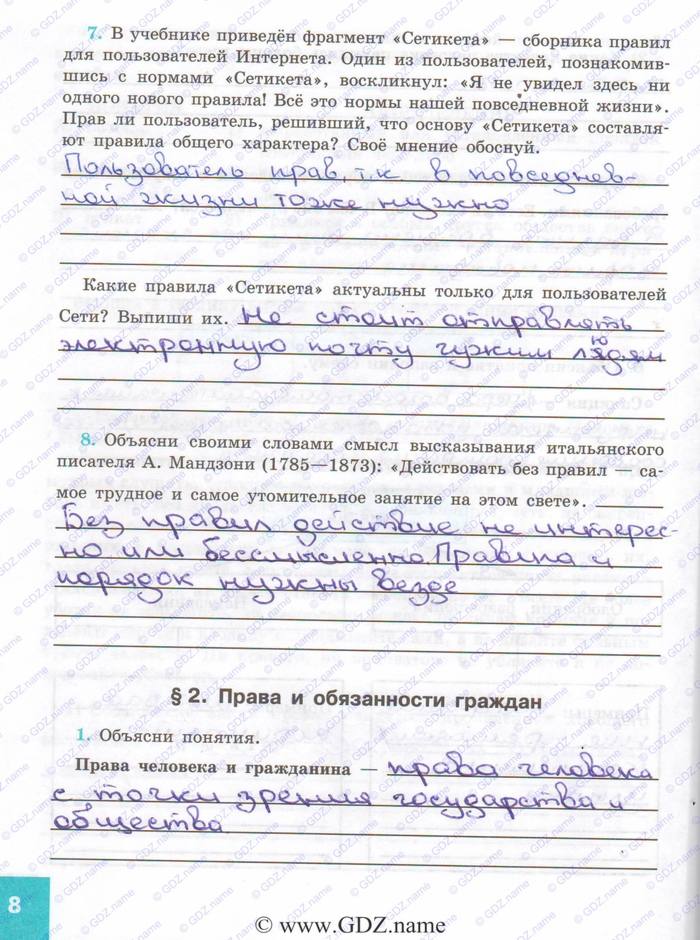 7. В учебнике приведён фрагмент «Сетикета» — сборника правил
для пользователей Интернета. Один из пользователей, познакомив-
шись с нормами «Сетикета», воскликнул: «Я не увидел здесь ни
одного нового правила! Всё это нормы нашей повседневной жизни».
Прав ли пользователь, решивший, что основу «Сетикета» составля-
ют правила общего характера? Своё мнение обоснуй.
Пользователь прав, т.к. в повседнев-
ной жизни тоже нужно
Какие правила «Сетикета» актуальны только для пользователей
Сети? Выпиши их. Не стоит отправлять
электронную почту чужим людям
8. Объясни своими словами смысл высказывания итальянского
писателя А. Мандзони (1785—1873): «Действовать без правил — са-
мое трудное и самое утомительное занятие на этом свете».
Без правил действие не интерес-
но или бессмысленно. Правила и
порядок нужны везде
§ 2. Права и обязанности граждан
1. Объясни понятия.
Права человека и гражданина — права человека
с точки зрения государства и
общества
8
© www.GDZ.name